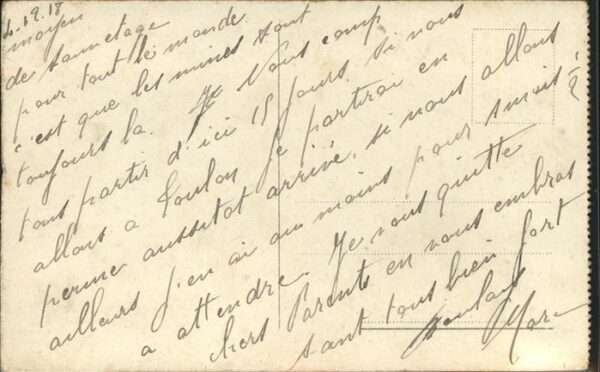 4.12.18
moyen
de sauvetage
pour tout le monde.
c'est que les mines sont
toujours la. Je Nous comp
tons partir d'ici 15 jours. Si nous
allons a Toulon je partirai en
perme aussitot arrivé, si nous allons
ailleurs j'en ai au moins pour 2 mois ½
a attendre. Je vous quitte
chers Parents en vous embras
sant tous bien fort
Marc